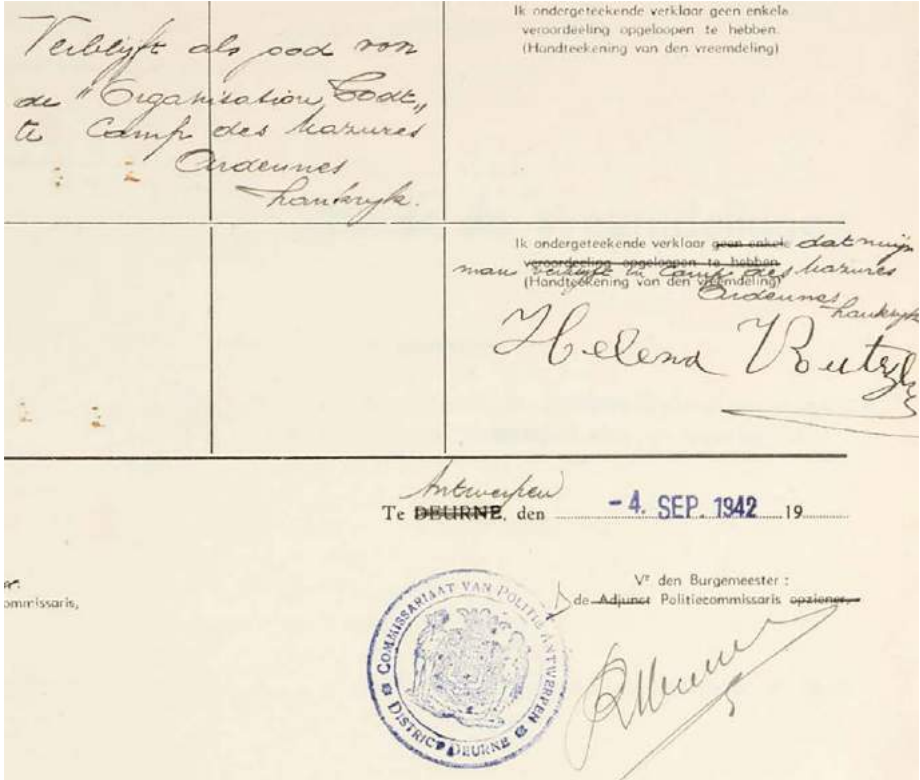 Verblijft als ood von
de "Organisation Todt„
te Camp des Mazures
Ardennes
Frankryk.
Ik ondergeteekende verklaar geen enkele
veroordeeling opgeloopen te hebben.
(Handteekening van den vreemdeling)
Ik ondergeteekende verklaar geen enkele dat mijn
veroordeeling opgeloopen te hebben
man verblijft in Camp des Mazures
(Handteekening van den vreemdeling)
Ardennes
Frankryk
Helena
Antwerpen
Te DEURNE, den - 4. SEP. 1942 19
ommissaris,
Vr den Burgemeester :
de Adjunct Politiecommissaris opziener,
COMMISSARIAAT VAN POLITIE ANTWERPEN
DISTRICT DEURNE